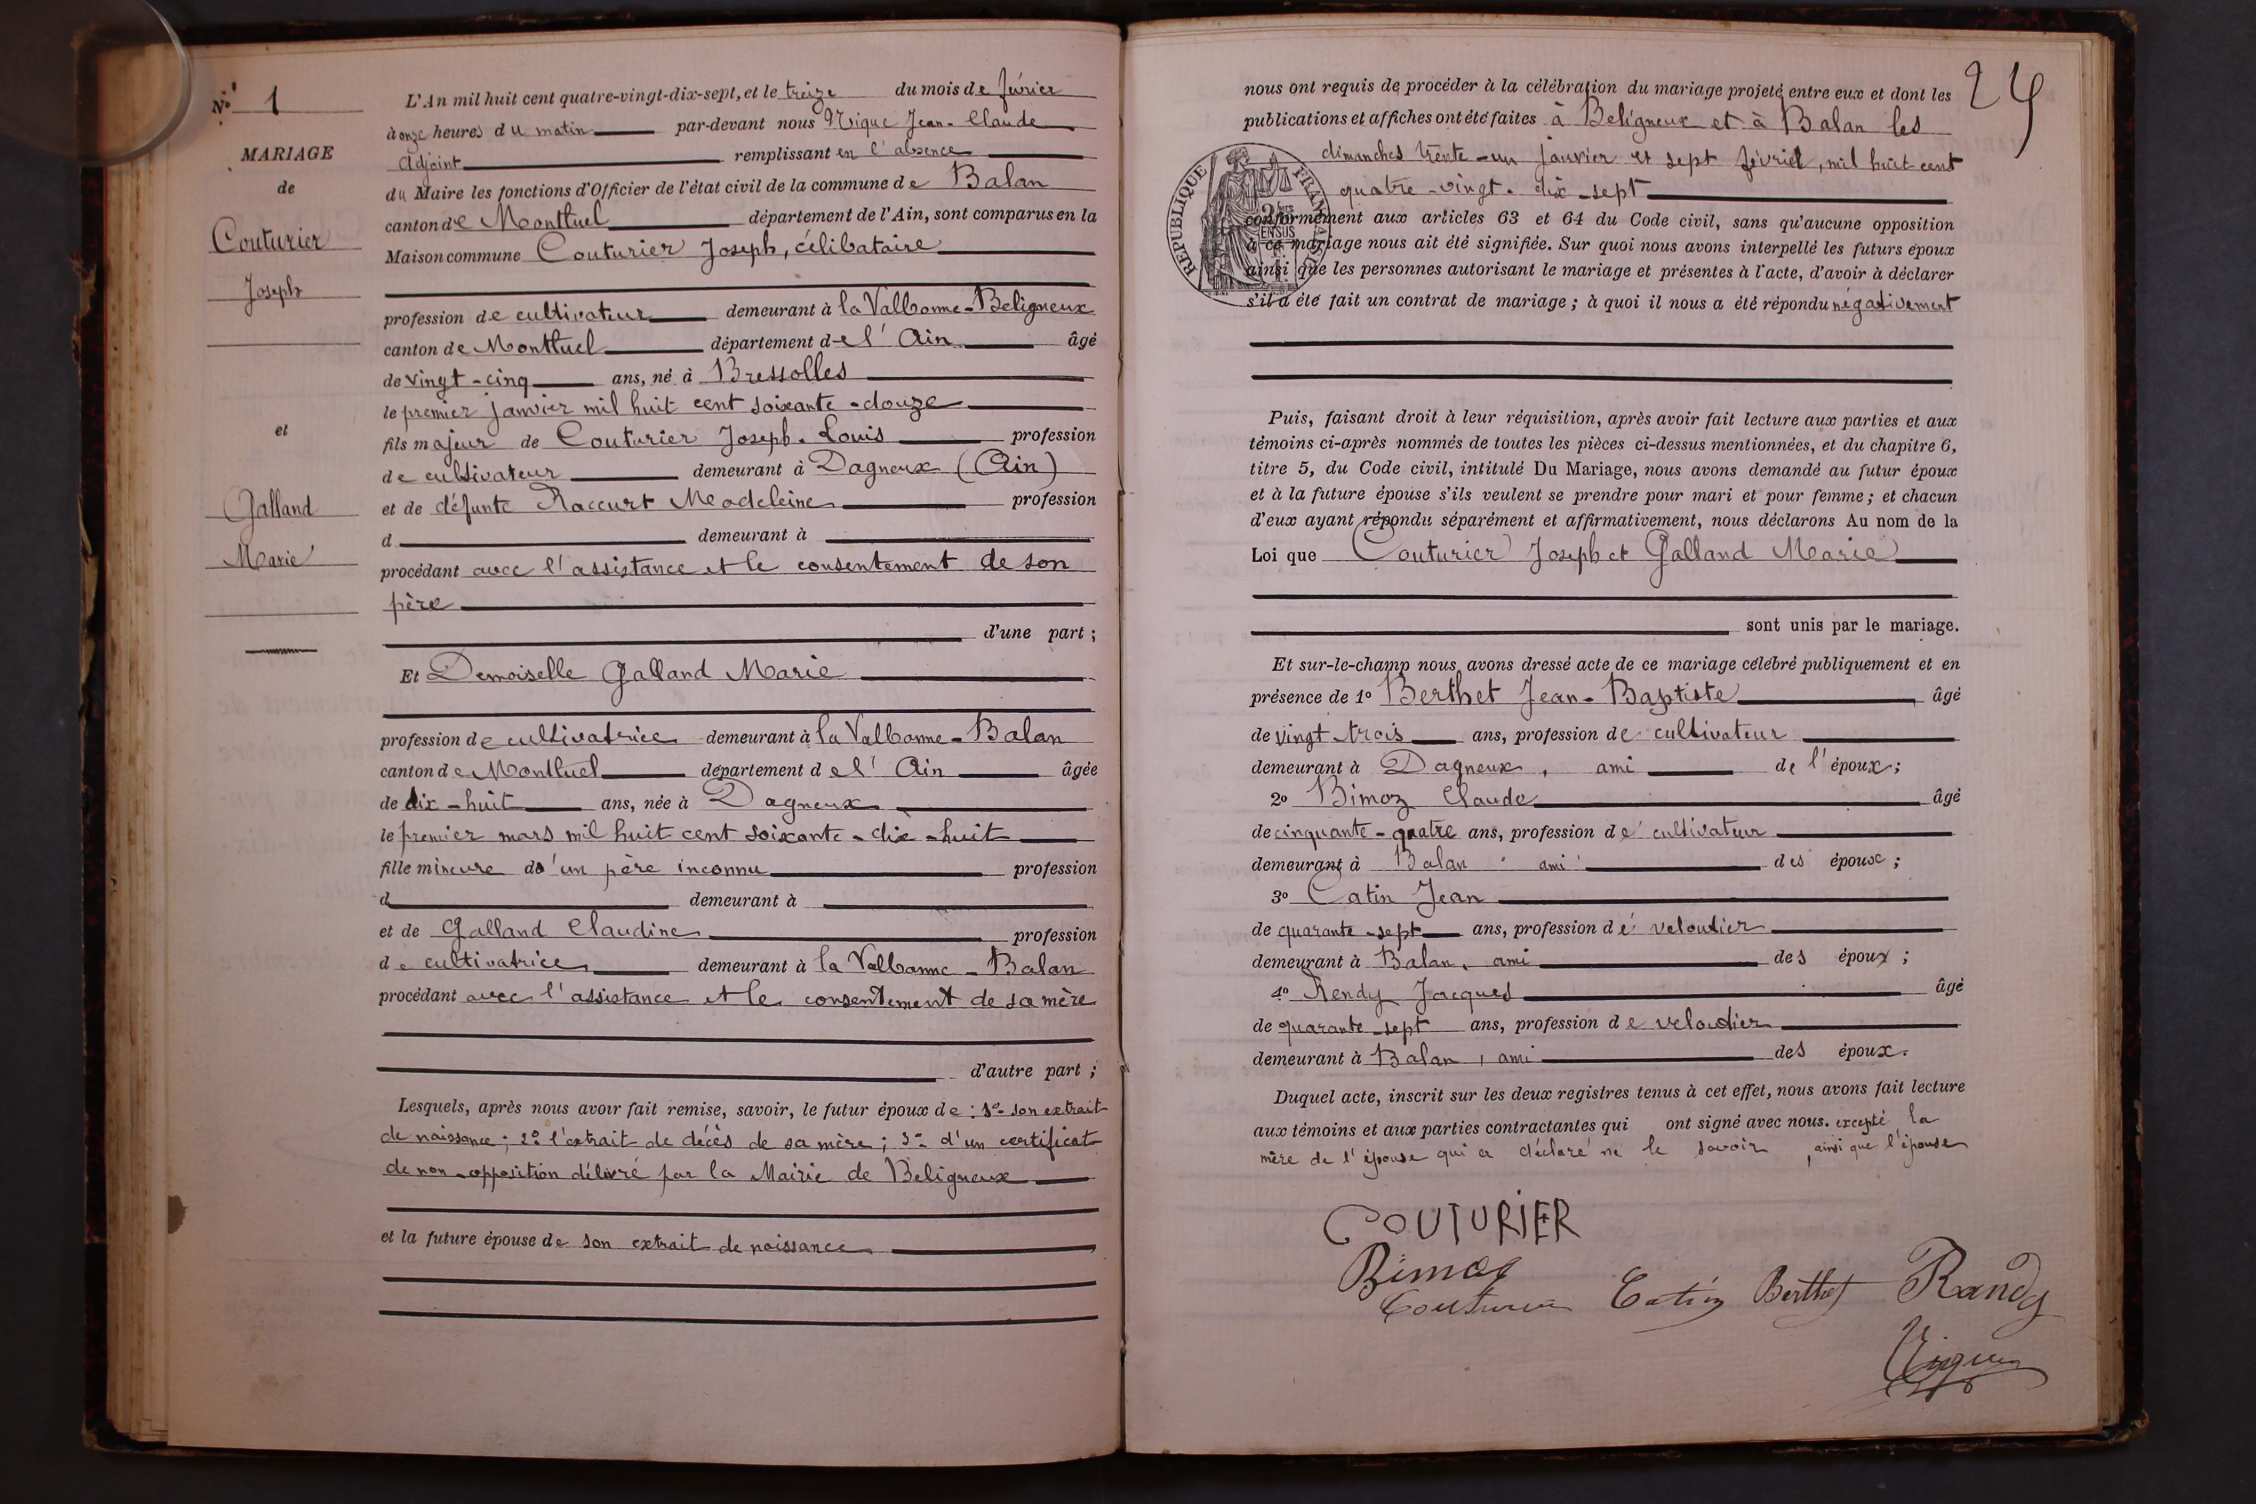 No. 1
MARIAGE
de
Couturier
Joseph
et
Galland
Marie
L'An mil huit cent quatre-vingt-dix-sept, et le treize du mois de février
à onze heures du matin par-devant nous Jean-Claude
adjoint remplissant en l'absence
du Maire les fonctions d'Officier de l'état civil de la commune de Balan
canton de Montluel département de l'Ain, sont comparus en la
Maison commune Couturier Joseph, célibataire
profession de cultivateur demeurant à la Valbonne-Beligneux
canton de Montluel département de l'Ain âgé
de vingt-cinq ans, né à Bressolles
le premier janvier mil huit cent soixante-douze
fils majeur de Couturier Joseph-Louis profession
de cultivateur demeurant à Dagneux (Ain)
et de défunte Raccurt Madeleine profession
d demeurant à
procédant avec l'assistance et le consentement de son
père
d'une part ;
Et Demoiselle Galland Marie
profession de cultivatrice demeurant à la Valbonne-Balan
canton de Montluel département de l'Ain âgée
de dix-huit ans, née à Dagneux
le premier mars mil huit cent soixante-dix-huit
fille mineure d'un père inconnu profession
d demeurant à
et de Galland Claudine profession
de cultivatrice demeurant à la Valbonne-Balan
procédant avec l'assistance et le consentement de sa mère
d'autre part ;
Lesquels, après nous avoir fait remise, savoir, le futur époux de : 1º- son extrait
de naissance ; 2º l'extrait de décès de sa mère ; 3º- d'un certificat
de non-opposition délivré par la Mairie de Beligneux
et la future épouse de son extrait de naissance
24
nous ont requis de procéder à la célébration du mariage projeté entre eux et dont les
publications et affiches ont été faites à Beligneux et à Balan les
dimanches trente-un janvier et sept février, mil huit cent
quatre-vingt-dix-sept
RÉPUBLIQUE FRANÇAISE
conformément aux articles 63 et 64 du Code civil, sans qu'aucune opposition
à ce mariage nous ait été signifiée. Sur quoi nous avons interpellé les futurs époux
ainsi que les personnes autorisant le mariage et présentes à l'acte, d'avoir à déclarer
s'il a été fait un contrat de mariage ; à quoi il nous a été répondu négativement
Puis, faisant droit à leur réquisition, après avoir fait lecture aux parties et aux
témoins ci-après nommés de toutes les pièces ci-dessus mentionnées, et du chapitre 6,
titre 5, du Code civil, intitulé Du Mariage, nous avons demandé au futur époux
et à la future épouse s'ils veulent se prendre pour mari et pour femme ; et chacun
d'eux ayant répondu séparément et affirmativement, nous déclarons Au nom de la
Loi que Couturier Joseph et Galland Marie
sont unis par le mariage.
Et sur-le-champ nous avons dressé acte de ce mariage célébré publiquement et en
présence de 1º Berthet Jean-Baptiste âgé
de vingt-trois ans, profession de cultivateur
demeurant à Dagneux, ami de l'époux ;
2º Bimoz Claude âgé
de cinquante-quatre ans, profession de cultivateur
demeurant à Balan ami des époux ;
3º Catin Jean
de quarante-sept ans, profession de veloutier
demeurant à Balan, ami des époux ;
4º Rendy Jacques âgé
de quarante-sept ans, profession de veloutier
demeurant à Balan, ami des époux.
Duquel acte, inscrit sur les deux registres tenus à cet effet, nous avons fait lecture
aux témoins et aux parties contractantes qui ont signé avec nous. excepté la
mère de l'épouse qui a déclaré ne le savoir, ainsi que l'épouse
COUTURIER
Bimoz
Couturier Catin Berthet Randy